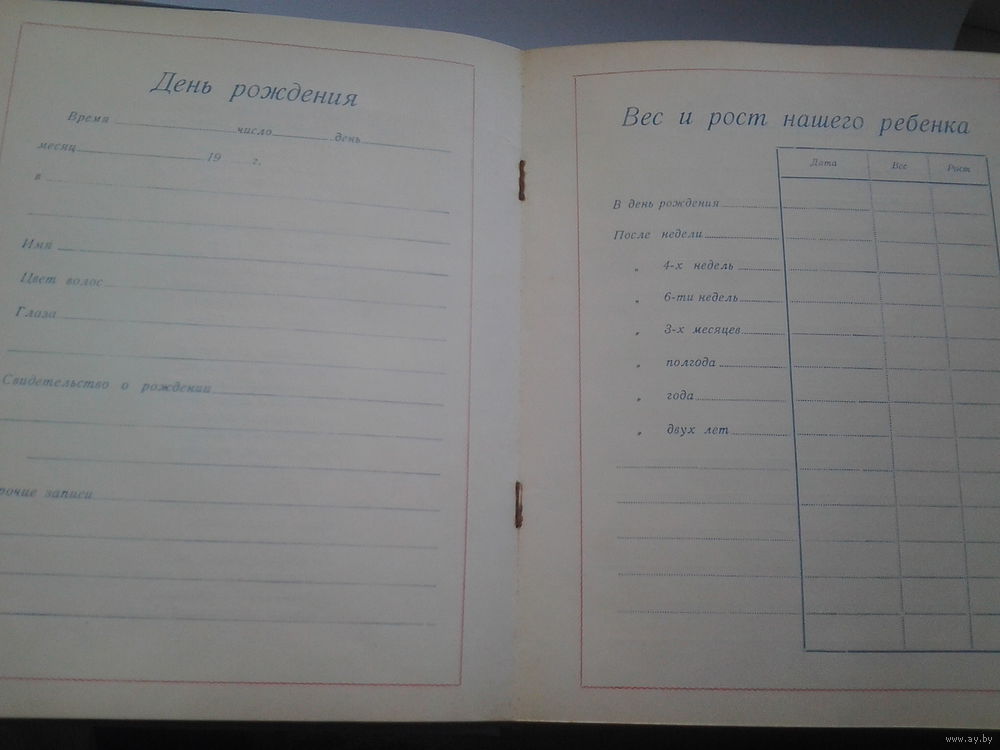 День рождения
Время число день
месяц 19 г.
в
Имя
Цвет волос
Глаза
Свидетельство о рождении
рочие записи
Вес и рост нашего ребенка
Дата Вес Рост
В день рождения
После недели
„ 4-х недель
„ 6-ти недель
„ 3-х месяцев
„ полгода
„ года
„ двух лет
www.ay.by